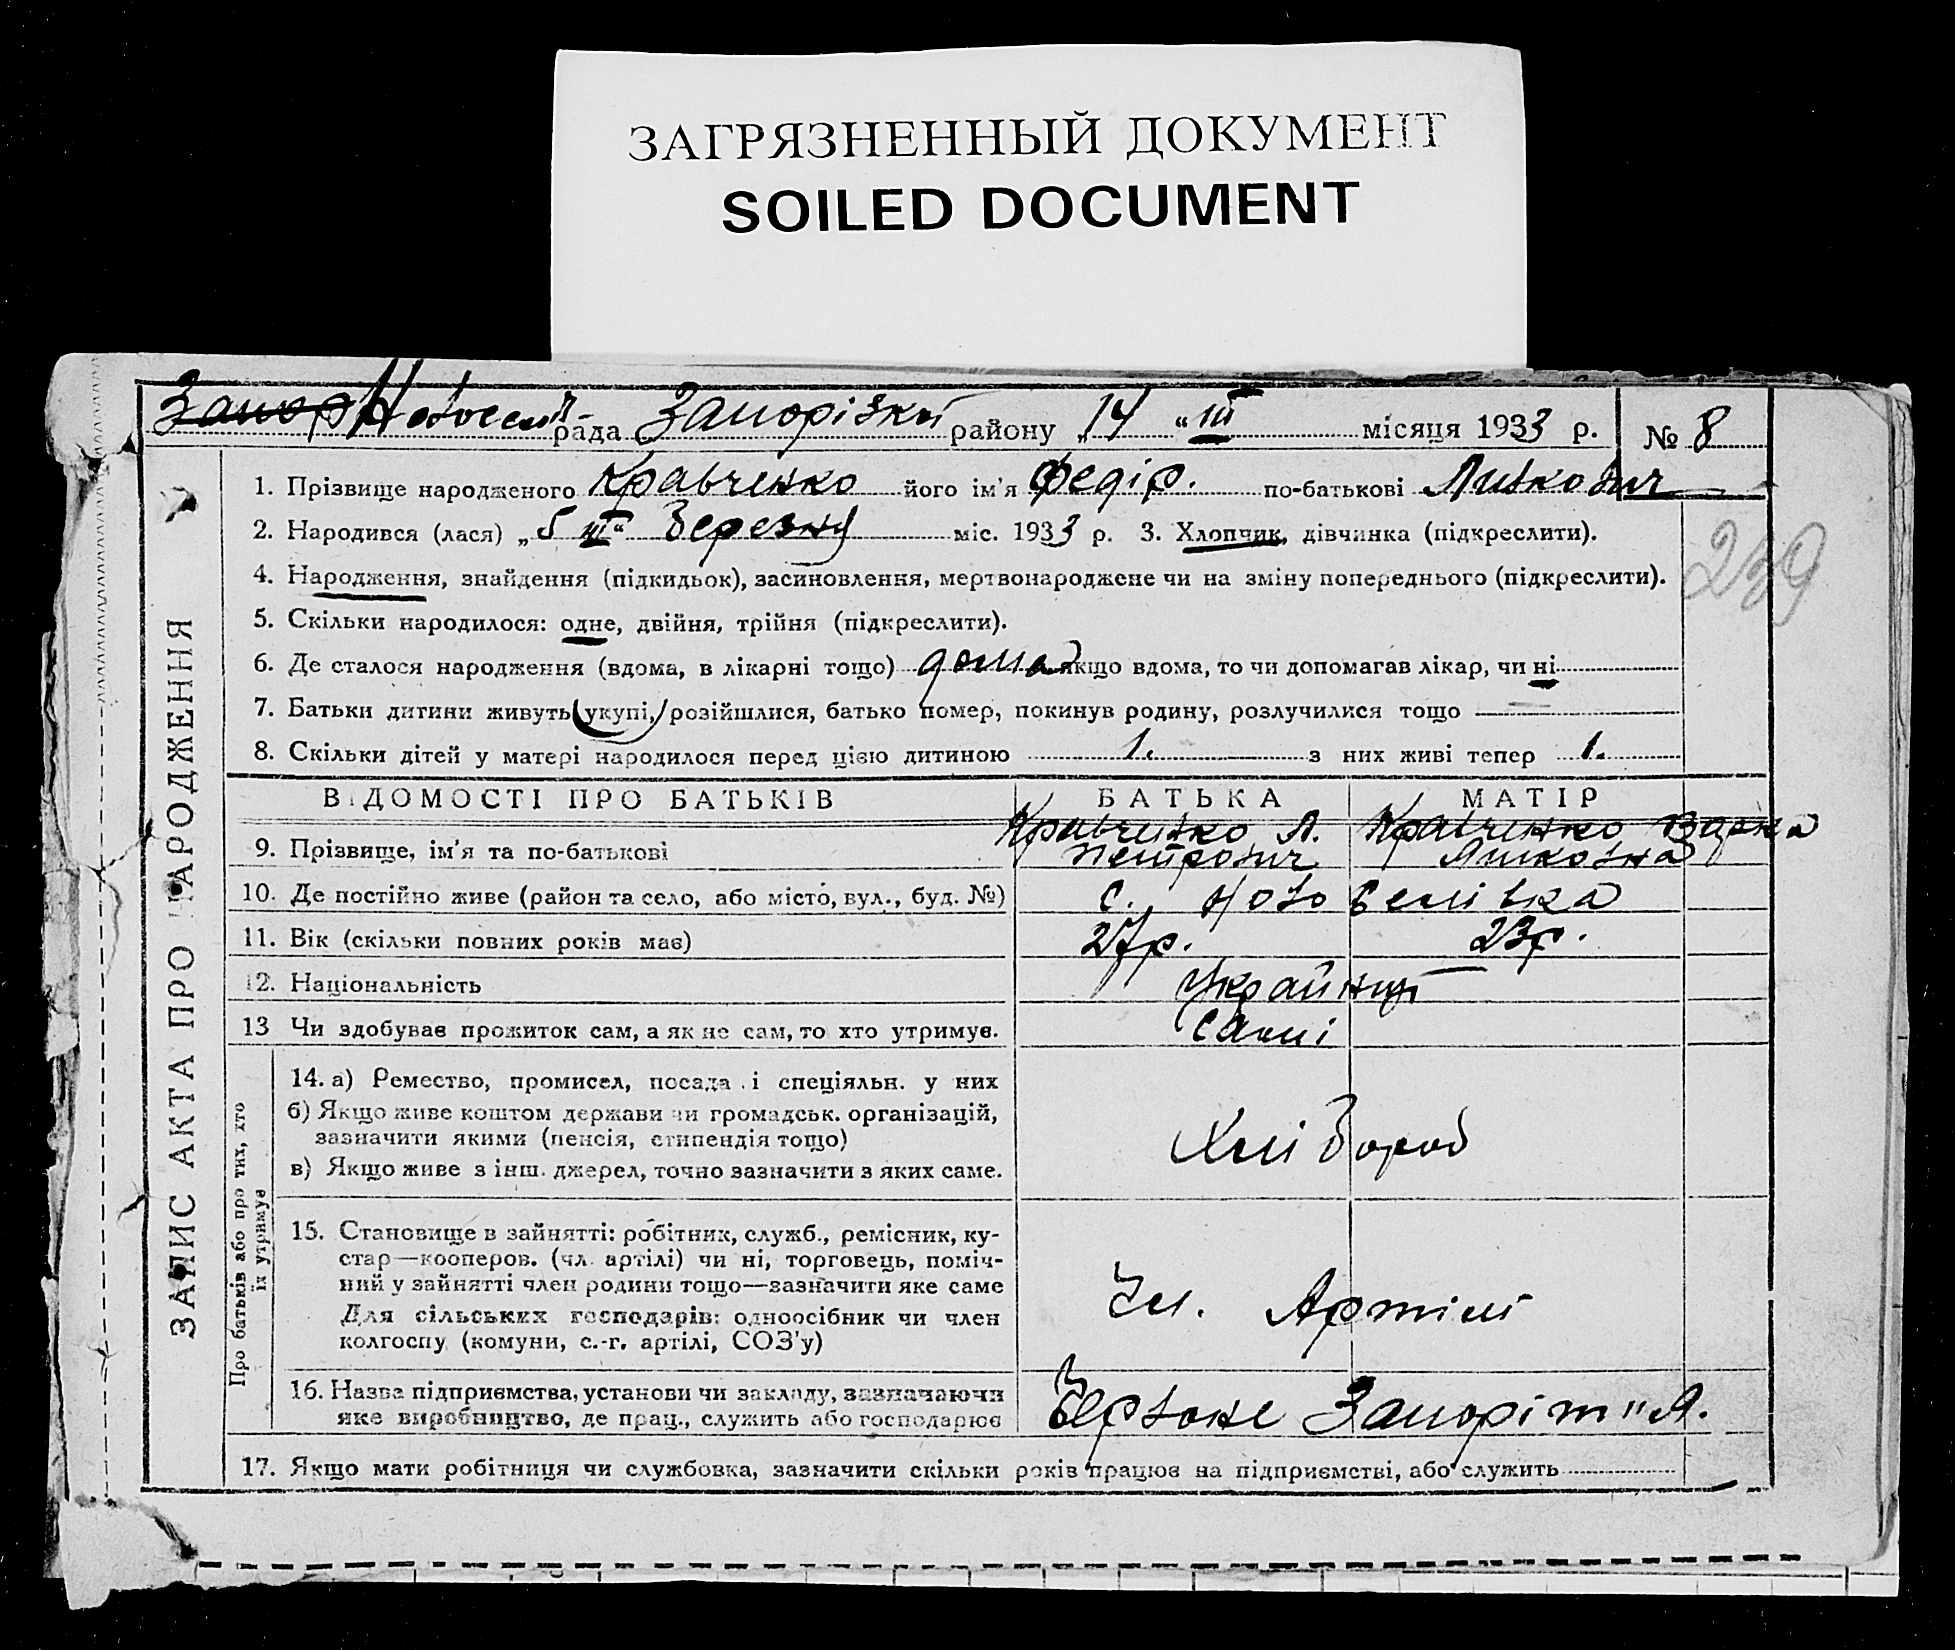 ЗАГРЯЗНЕННЫЙ ДОКУМЕНТ
SOILED DOCUMENT
Запор рада Запорізкий району „14 “ III місяця 1933 р. № 8
1. Прізвище народженого Кравченко його ім'я Федір. по-батькові
2. Народився (лася) „5 III“ Березня міс. 1933 р. 3. Хлопчик, дівчинка (підкреслити).
239
4. Народження, знайдення (підкидьок), засиновлення, мертвонароджене чи на зміну попереднього (підкреслити).
5. Скільки народилося: одне, двійня, трійня (підкреслити).
6. Де сталося народження (вдома, в лікарні тощо) дома якщо вдома, то чи допомагав лікар, чи ні
7. Батьки дитини живуть укупі, розійшлися, батько помер, покинув родину, розлучилися тощо
8. Скільки дітей у матері народилося перед цією дитиною 1. з них живі тепер 1.
ЗАПИС АКТА ПРО НАРОДЖЕННЯ
ВІДОМОСТІ ПРО БАТЬКІВ БАТЬКА МАТІР
Кравченко Л. Кравченко
9. Прізвище, ім'я та по-батькові Петрович
10. Де постійно живе (район та село, або місто, вул., буд. №) с.
11. Вік (скільки повних років має) 27р. 23р.
12. Національність Українці
13 Чи здобував прожиток сам, а як не сам, то хто утримує. самі
Про батьків або про тих, хто їх утримує
14. а) Ремество, промисел, посада і спеціяльн. у них
б) Якщо живе коштом держави чи громадськ. організацій,
зазначити якими (пенсія, стипендія тощо)
Хлібороб
в) Якщо живе з інш. джерел, точно зазначити з яких саме.
15. Становище в зайнятті: робітник, служб., ремісник, ку-
стар—кооперов. (чл. артілі) чи ні, торговець, поміч-
ний у зайнятті член родини тощо—зазначити яке саме
Чл. Артілі
Для сільських господарів: одноосібник чи член
колгоспу (комуни, с.-г. артілі, СОЗ'у)
16. Назва підприємства, установи чи закладу, зазначаючи
яке виробництво, де прац., служить або господарює Червоне
17. Якщо мати робітниця чи службовка, зазначити скільки років працює на підприємстві, або служить